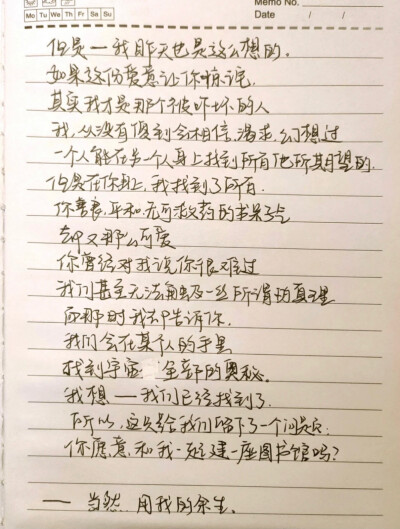 Memo No.
Mo Tu We Th Fr Sa Su
Date / /
但是—我昨天也是这么想的.
如果这份爱意让你惊诧,
其实我才是那个被吓坏的人
我,从没有傻到会相信,渴求,幻想过
一个人能在另一个人身上找到所有他所期望的.
但是在你身上,我找到了所有.
你善良,平和,无可救药的书呆子气
却又那么可爱
你曾经对我说,你很难过
我们甚至无法触及一丝所谓的真理
而那时我却告诉你.
我们会在某个人的手里
找到宇宙 全部的奥秘.
我想—我们已经找到了.
所以,这只给我们留下了一个问题:
你愿意,和我一起建一座图书馆吗?
—当然.用我的余生.